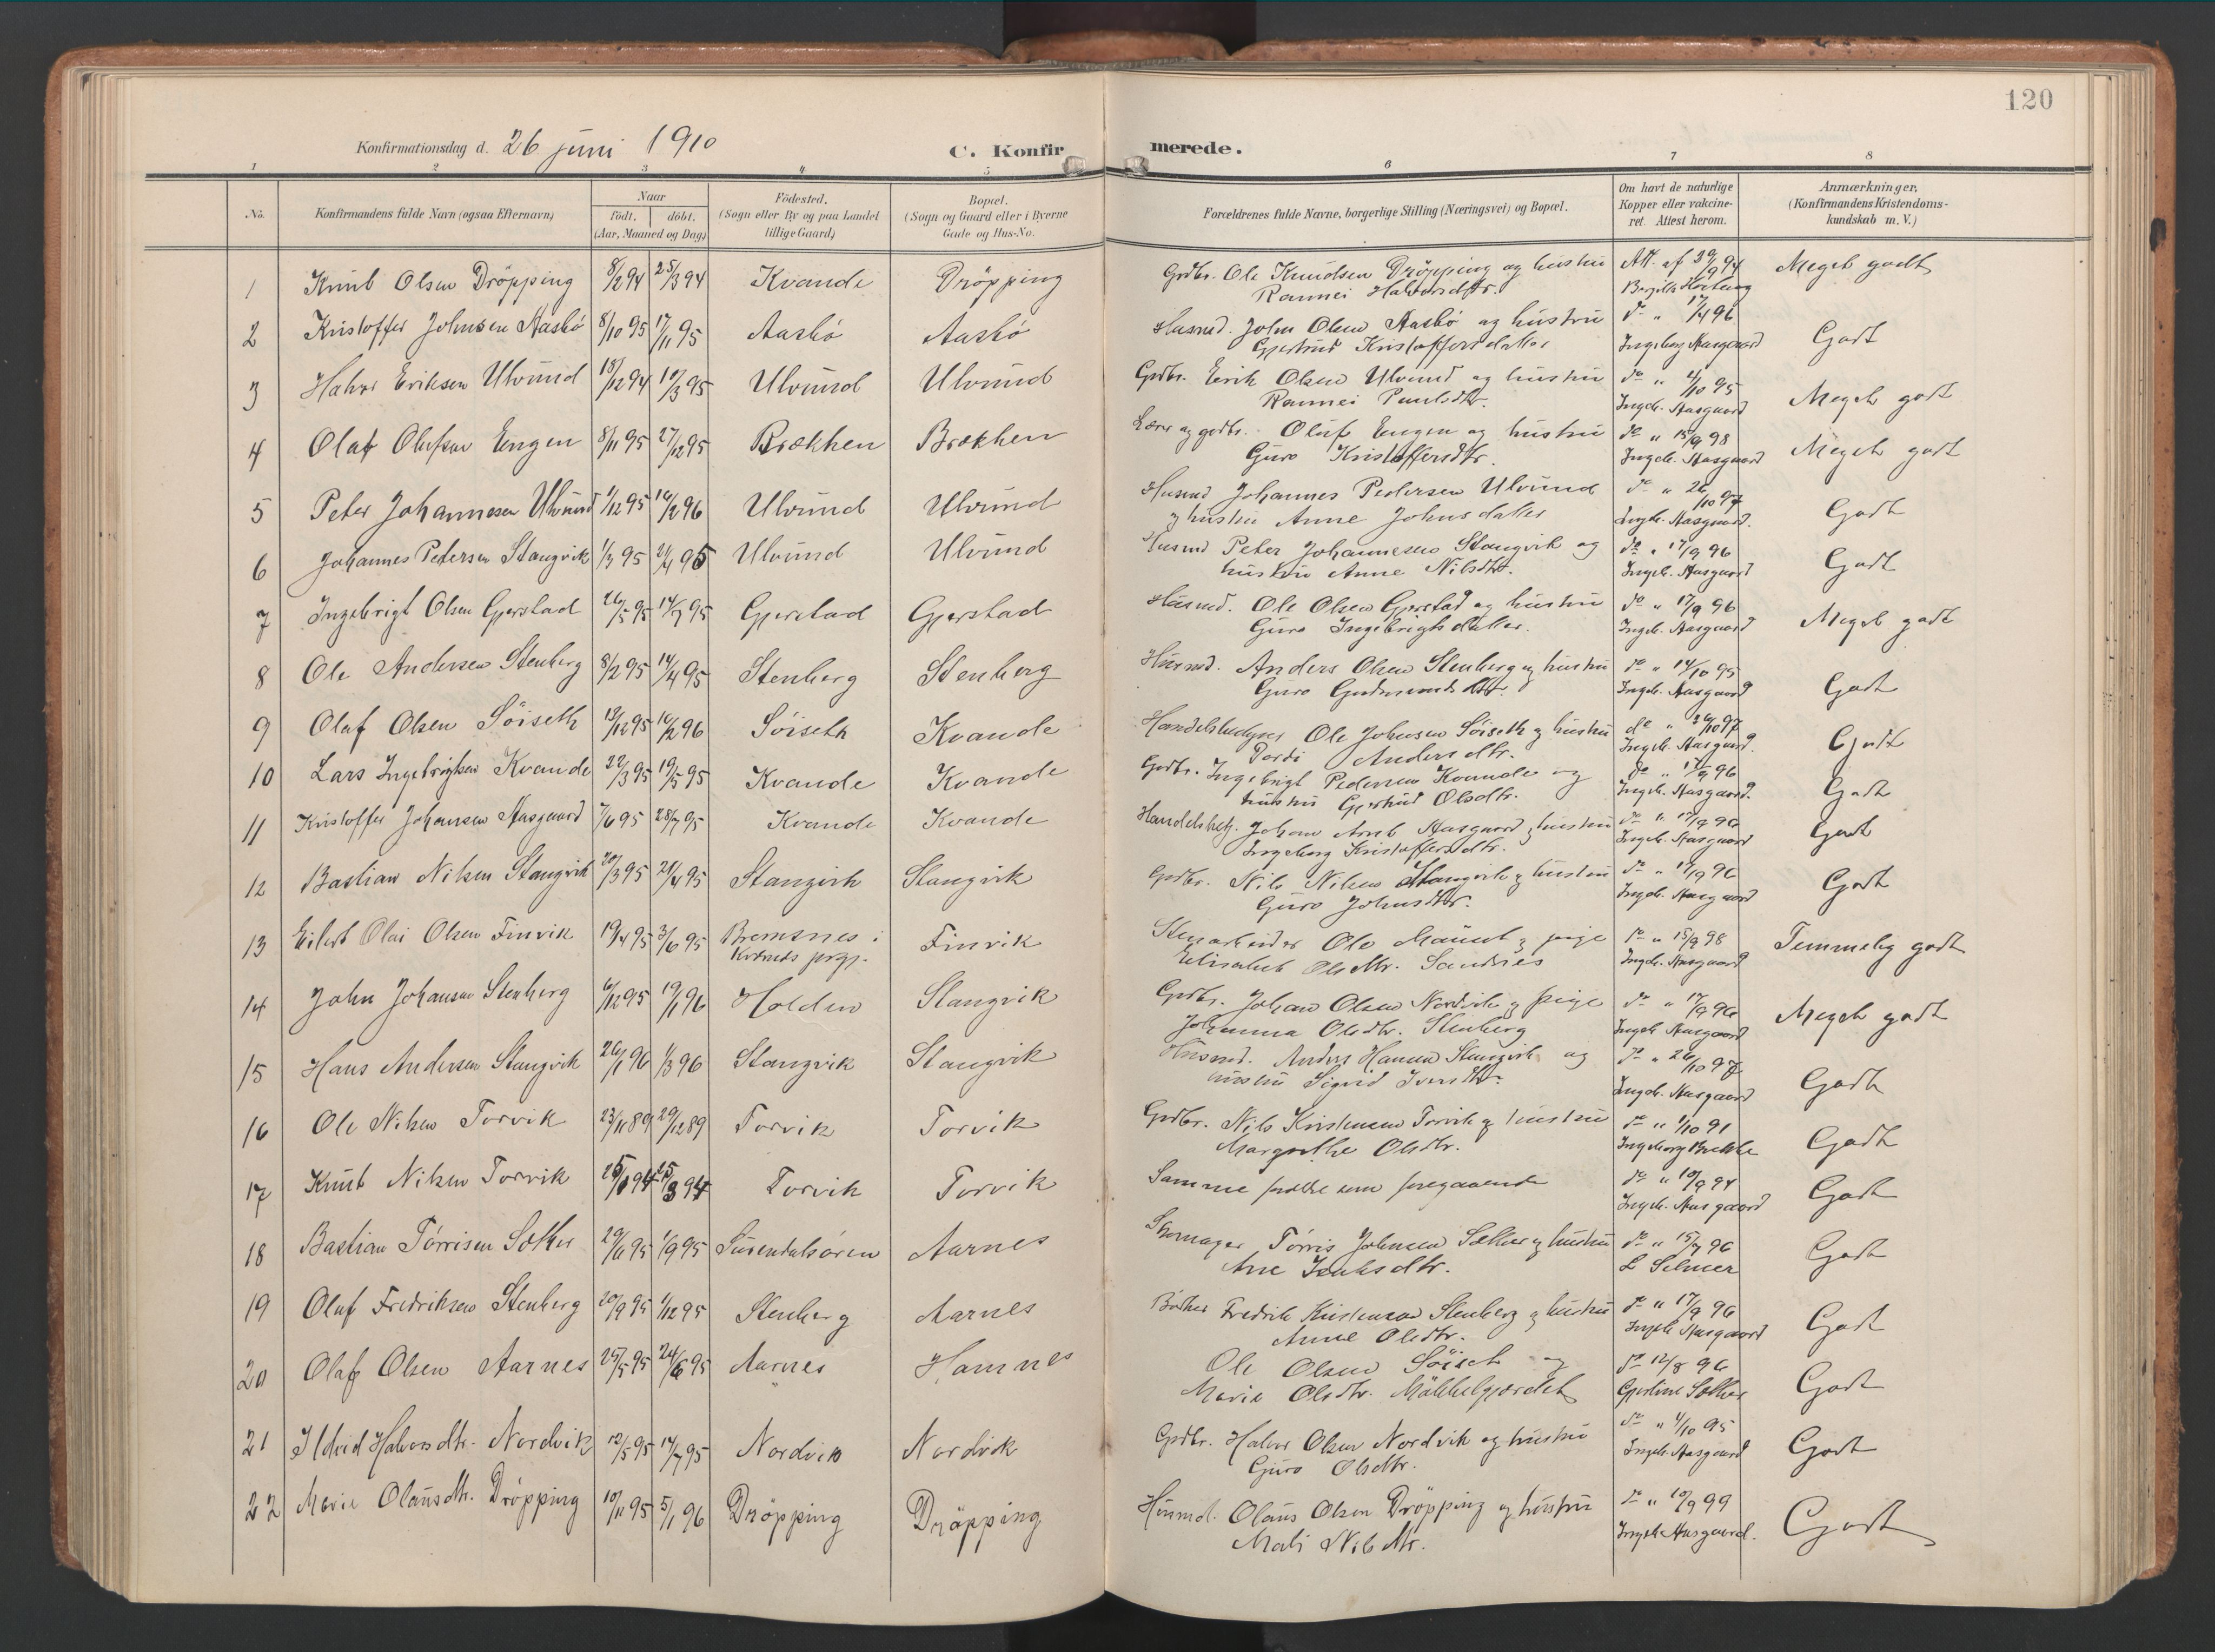 120
Konfirmationsdag d. 26 juni 1910
C. Konfirmerede.
1 2 3 4 5 6 7 8
No. Konfirmandens fulde Navn (ogsaa Efternavn) Naar födt. döbt. (Aar, Maaned og Dag) Födested. (Sogn eller By og paa Landet tillige Gaard) Bopæl. (Sogn og Gaard eller i Byerne Gade og Hus-No. Forældrenes fulde Navne, borgerlige Stilling (Næringsvei) og Bopæl. Om havt de naturlige Kopper eller vaccineret. Attest herom. Anmærkninger, (Konfirmandens Kristendomskundskab m. V.)
1 Knut Olsen Dröpping 8/2 94 25/3 94 Kvande Dröpping Grdbr. Ole Knudsen Dröpping og hustru Att. af 29/9 94 Meget godt
Rannei Halvorsdtr.
2 Kristoffer Johnsen Aasbö 8/10 95 17/11 95 Aasbö Aasbö Husmd. John Olsen Aasbö og hustru do " 17/9 96 Godt
Gjertrud Kristoffersdatter Ingeborg Aasgaard
3 Halvor Eriksen Ulvund 18/12 94 10/3 95 Ulvund Ulvund Grdbr. Erik Olsen Ulvund og hustru do " 4/10 95 Meget godt
Rannei Paulsdtr. Ingeb. Aasgaard
4 Olaf Olufsen Engen 8/11 95 27/12 95 Brækken Brækken Lærer og grdbr. Oluf Engen og hustru do " 15/9 98 Meget godt
Guro Kristoffersdtr. Ingeb. Aasgaard
5 Peter Johannesen Ulvund 1/12 95 16/2 96 Ulvund Ulvund Husmd Johannes Pedersen Ulvund do " 26/10 97 Godt
og hustru Anne Johnsdatter Ingeb. Aasgaard.
6 Johannes Petersen Stangvik 1/3 95 21/4 95 Ulvund Ulvund Husmd Peter Johannesen Stangvik og do " 17/9 96 Godt
hustru Anne Nilsdtr. Ingeb. Aasgaard
7 Ingebrigt Olsen Gjerstad 26/5 95 14/7 95 Gjerstad Gjerstad Husmd. Ole Olsen Gjerstad og hustru do " 17/9 96 Meget godt
Guro Ingebrigtsdatter. Ingeb. Aasgaard
8 Ole Andersen Stenberg 8/2 95 14/4 95 Stenberg Stenberg Husmd. Anders Olsen Stenberg og hustru do " 14/10 95 Godt
Guro Gudmundsdtr. Ingeb. Aasgaard
9 Olaf Olsen Söiseth 19/12 95 16/2 96 Söiseth Kvande Handelsbetjent Ole Johnsen Söiseth og hustru do " 26/10 97 Godt
Dordi Andersdtr. Ingeb. Aasgaard.
10 Lars Ingebrigtsen Kvande 22/3 95 19/5 95 Kvande Kvande Grdbr. Ingebrigt Pedersen Kvande og do " 17/9 96 Godt
hustru Gjertrud Olsdtr. Ingeb. Aasgaard.
11 Kristoffer Johansen Aasgaard 7/6 95 28/7 95 Kvande Kvande Handelsbetj. Johan Arnt Aasgaard og hustru do " 17/9 96 Godt
Ingeborg Kristoffersdtr. Ingeb. Aasgaard
12 Bastian Nilsen Stangvik 20/3 95 21/4 95 Stangvik Stangvik Grdbr. Nils Nilsen Stangvik og hustru do " 17/9 96 Godt
Guro Johnsdtr. Ingeb. Aasgaard
13 Eilert Olai Olsen Finvik 19/4 95 3/6 95 Bremsnes i Finvik Stenarbeider Ole og pige do " 15/9 98 Temmelig godt
Kværnes prgj. Elisabet Olsdtr. Sandnes Ingeb. Aasgaard
14 John Johansen Stenberg 6/12 95 19/1 96 Holden Stangvik Grdbr. Johan Olsen Nordvik og pige do " 17/9 96 Meget godt
Johanna Olsdtr. Stenberg Ingeb Aasgaard
15 Hans Andersen Stangvik 26/1 96 1/3 96 Stangvik Stangvik Husmd. Anders Hansen Stangvik og do " 26/10 97 Godt
hustru Sigrid Iversdtr. Ingeb. Aasgaard
16 Ole Nilsen Torvik 23/11 89 29/12 89 Torvik Torvik Grdbr. Nils Kristensen Torvik og hustru do " 1/10 91 Godt
Margrethe Olsdtr. Ingeborg Brekke
17 Knut Nilsen Torvik 25/1 94 25/3 94 Torvik Torvik Samme forældre som foregaaende do " 10/9 94 Godt
Ingeb. Aasgaard
18 Bastian Törrisen Sæther 29/6 95 1/9 95 Surendalsören Aarnes Skomager Törris Johnsen Sæther og hustru do " 15/7 96 Godt
Ane Isaksdtr. L Selmer
19 Olaf Fredriksen Stenberg 20/9 95 1/12 95 Stenberg Aarnes Fredrik Kristensen Stenberg og hustru do " 17/9 96 Godt
Anne Olsdtr. Ingeb Aasgaard
20 Olaf Olsen Aarnes 25/5 95 24/6 95 Aarnes Hamnes Ole Olsen Söiset og do 12/8 96 Godt
Marie Olsdtr. Mükkelgjærdet Gjertine Sæther
21 Ildrid Halvorsdtr. Nordvik 12/5 95 14/7 95 Nordvik Nordvik Grdbr. Halvor Olsen Nordvik og hustru do " 4/10 95 Godt
Guro Olsdtr. Ingeb. Aasgaard
22 Marie Olausdtr. Dröpping 10/11 95 5/1 96 Dröpping Dröpping Husmd. Olaus Olsen Dröpping og hustru do " 10/9 99 Godt
Mali Nilsdtr. Ingeb. Aasgaard.